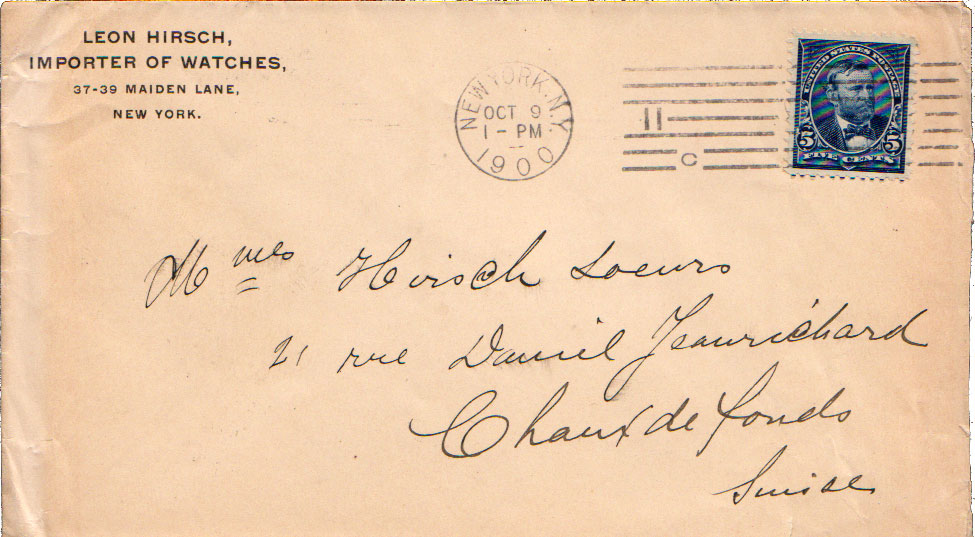 LEON HIRSCH,
IMPORTER OF WATCHES,
37-39 MAIDEN LANE,
NEW YORK.
NEW YORK. N.Y.
OCT 9
1 - PM
1900
11
C
UNITED STATES POSTAGE
5 5
FIVE CENTS
Mmes Hirsch Soeurs
21 rue Daniel Jeanrichard
Chaux de fonds
Suisse